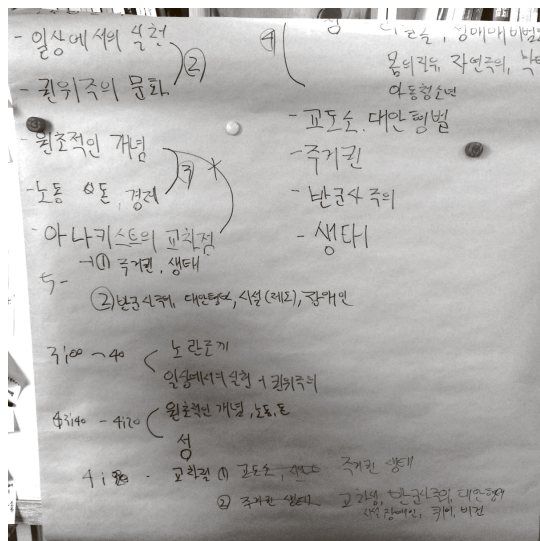 - 일상에서의 실천
- 권위주의 문화
②
- 원초적인 개념
- 노동 돈, 경제
③
- 아나키스트의 교차점
→① 주거권, 생태
②반군사주의, 대안형벌, 시설(제도), 장애인
④
몸의 권유, 자연주의,
아동청소년
- 교도소, 대안형벌
- 주거권
- 반군사주의
- 생태
3:00 ~ 40
일상에서의 실천 + 권위주의
3:40 - 4:20
원초적인 개념, 노동, 돈
성
교차점 ① 교도소, 주거권 생태
② 주거권 생태 반군사주의, 대안형벌
장애인, 퀴어, 비건